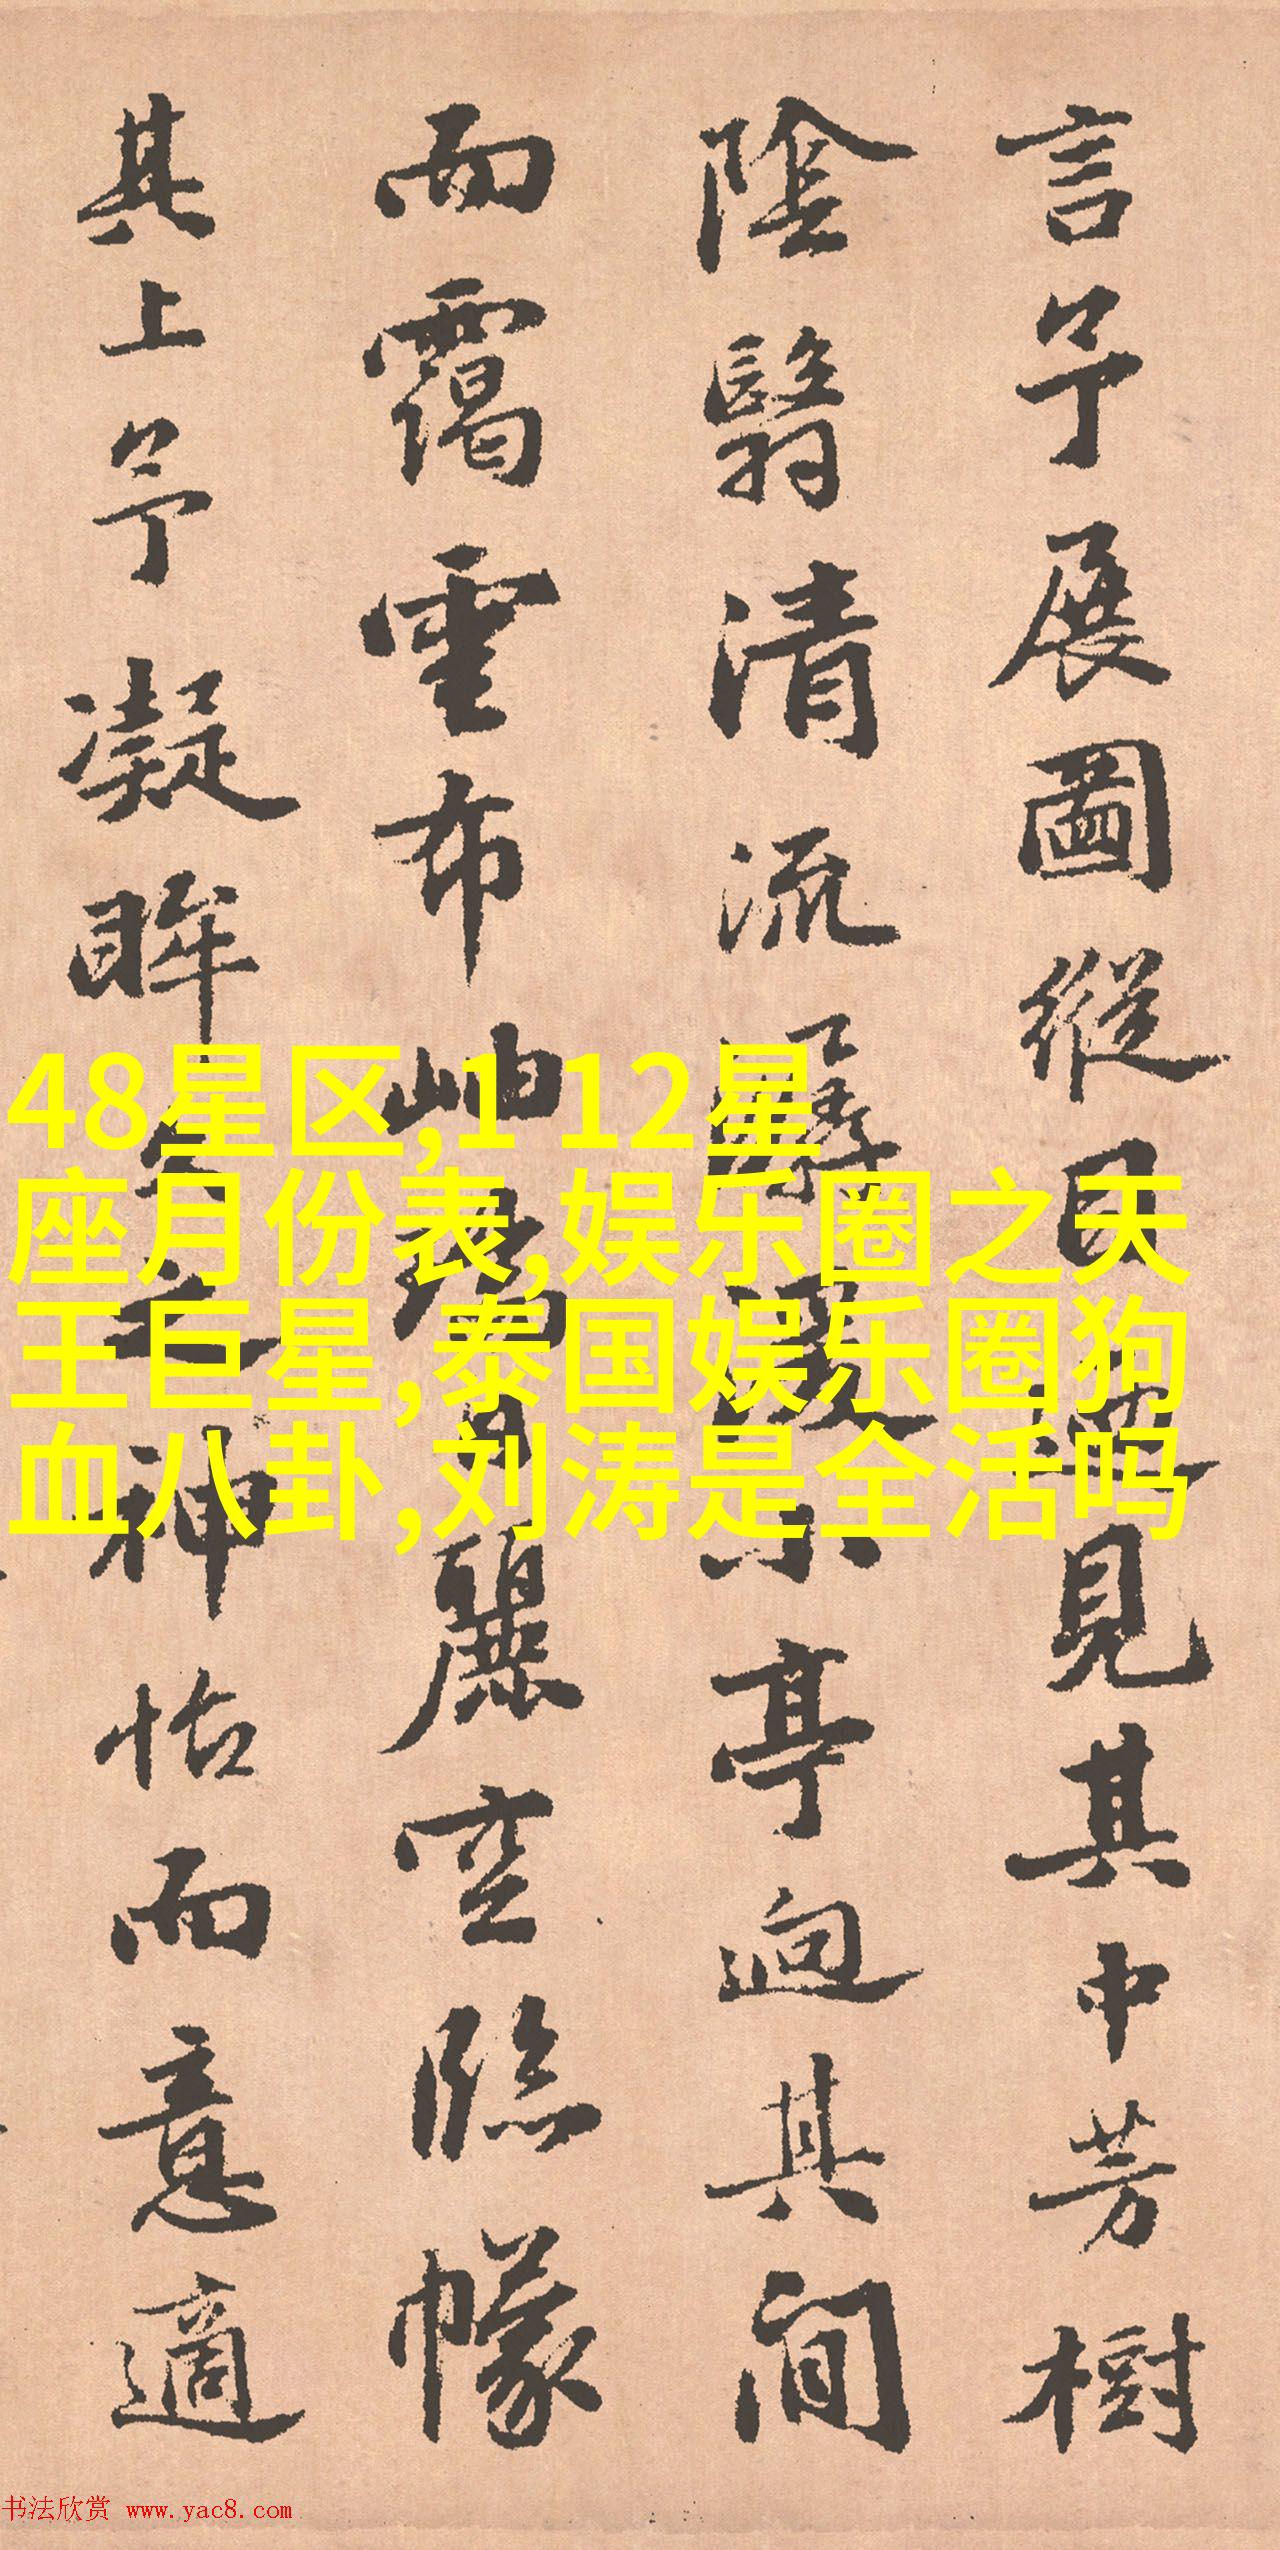 言予展圖縱目 見其中芳樹
陰翳清流潺湲小亭迥其間
而靄雲布岫 月麗空臨幪
其上予凝眸久之神怡而意適
48星区,1 12星
座月份表,娱乐圈之天
王巨星,泰国娱乐圈狗
血八卦,刘涛是全活吗
书法欣赏 www.yac8.com